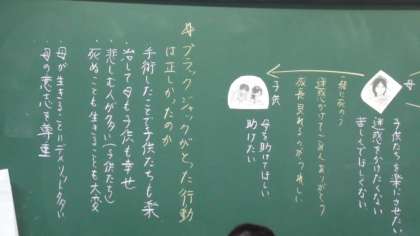 母
子供たちを楽にさせたい
迷惑をかけたくない
苦しんでほしくない
一緒に死のう
迷惑かけてごめんありがとう
成長見れるのがうれしい
子供
母を助けてほしい
助けたい
ブラックジャックがとった行動
は正しかったのか
手術したことで子供たちも楽
治して母も子供も幸せ
悲しむ人が多い(子供たち)
死ぬことも生きることも大変
・母が生きることにデメリット多い
・母の意志を尊重